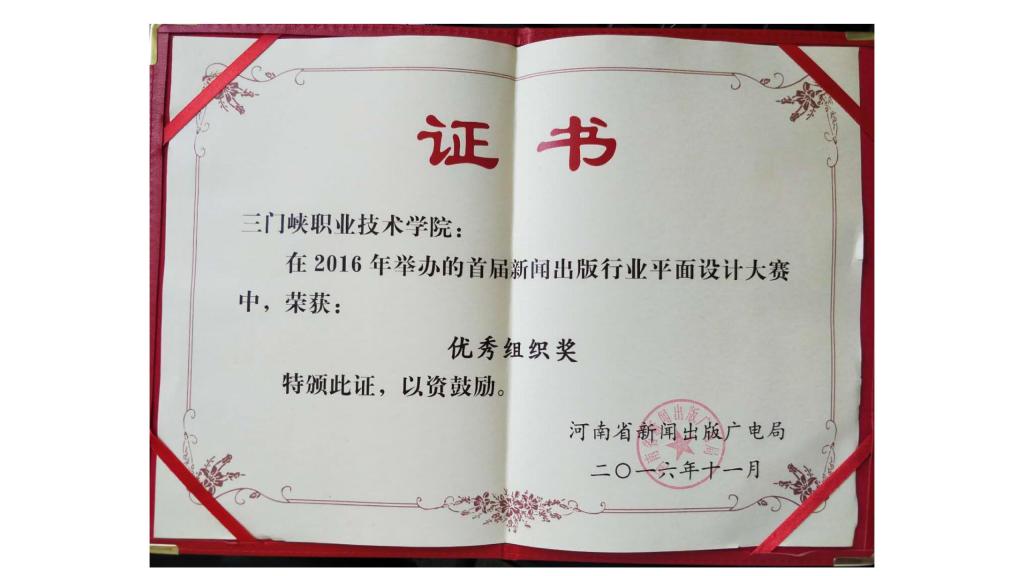 证书
三门峡职业技术学院：
在 2016 年举办的首届新闻出版行业平面设计大赛
中，荣获：
优秀组织奖
特颁此证，以资鼓励。
河南省新闻出版广电局
二〇一六年十一月